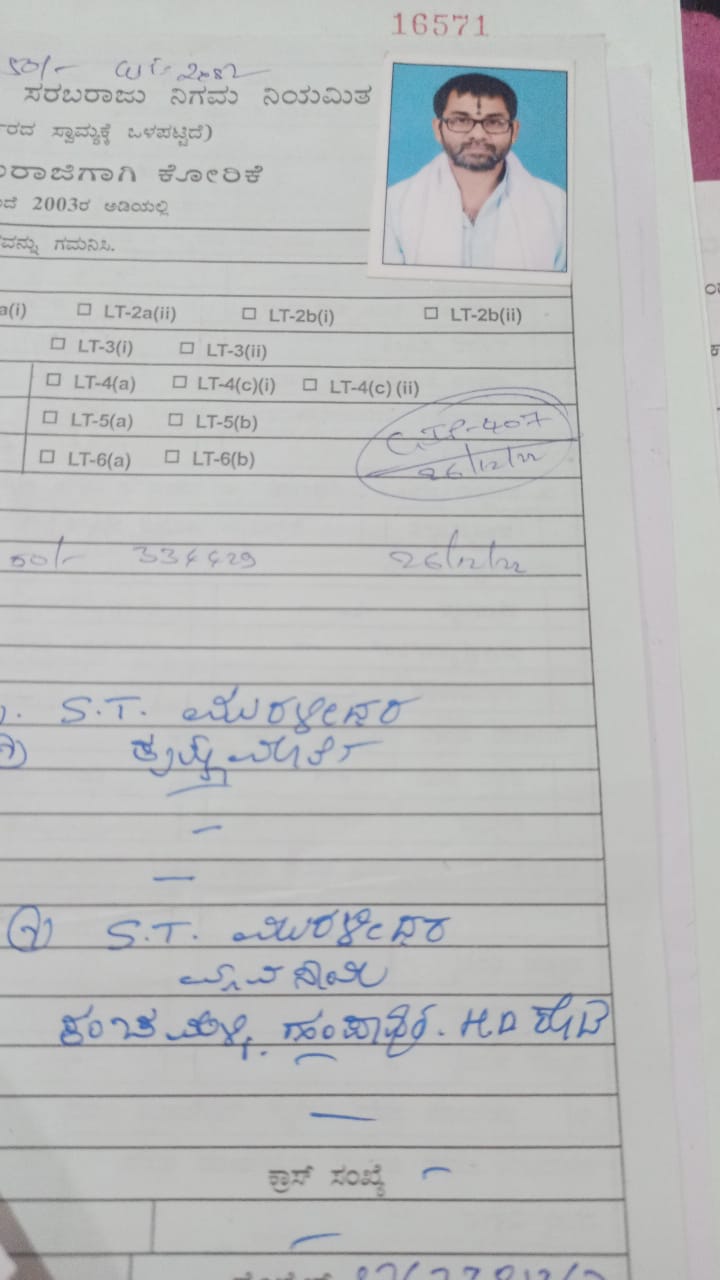 16571
50/-
ಸರಬರಾಜು ನಿಗಮ ನಿಯಮಿತ
ರದ ಸ್ವಾಮ್ಯಕ್ಕೆ ಒಳಪಟ್ಟಿದೆ)
ರಾಜಿಗಾಗಿ ಕೋರಿಕೆ
2003ರ ಅಡಿಯಲ್ಲಿ
ವನ್ನು ಗಮನಿಸಿ.
a(i) LT-2a(ii) LT-2b(i) LT-2b(ii)
LT-3(i) LT-3(ii)
LT-4(a) LT-4(c)(i) LT-4(c) (ii)
LT-5(a) LT-5(b)
LT-6(a) LT-6(b)
26/12/22
50/- 334429 26/12/22
S.T. ಮುರಳೀಧರ
S.T. ಮುರಳೀಧರ
H.D ಕೋಟೆ
ಕ್ರಾಸ್ ಸಂಖ್ಯೆ -